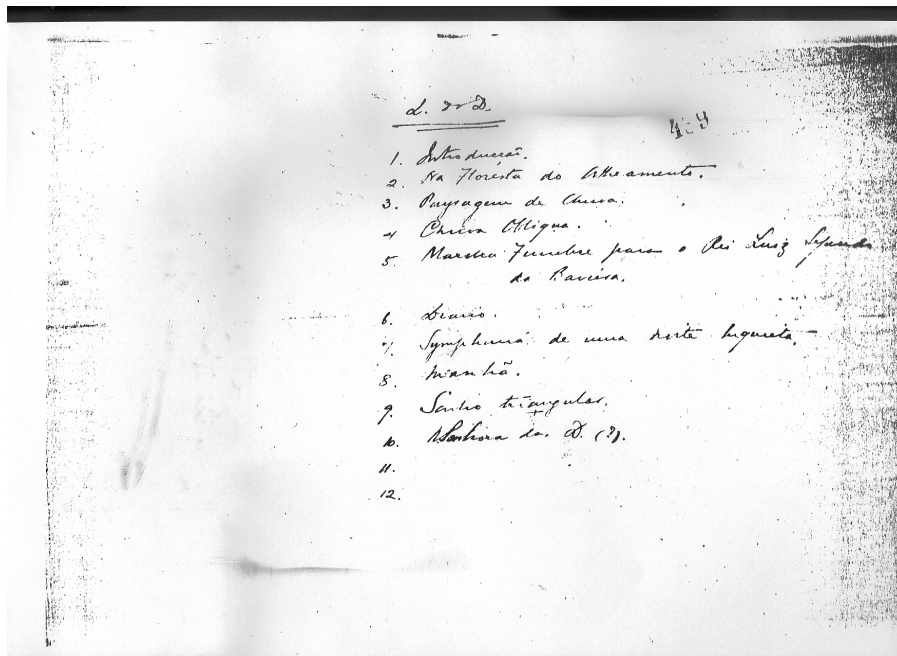 L. do D.
1. Introducção.
2. Na Floresta do Alheamento.
3. Paysagem de Chuva.
4 Chuva Obliqua.
5. Marcha Funebre para o Rei Luiz Segundo
da Baviera.
6. Diario.
7. Symphonia de uma noite inquieta.
8. Manhã.
9. Sonho triangular.
10. N. Senhora do D. (?).
11.
12.